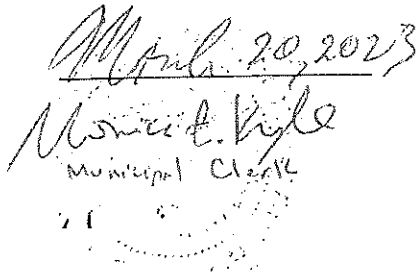 March 20, 2023
Monica E. Kyle
Municipal Clerk